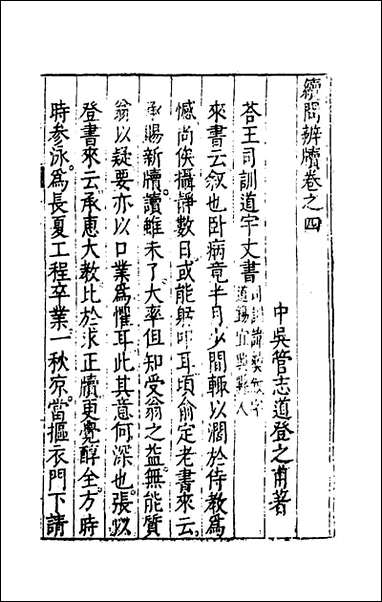 續問辨牘卷之四
中吳管志道登之甫著
答王司訓道宇丈書
來書云叙也卧病竟半月少間輙以濶於侍教爲
憾尚俟攝靜數日或能躬叩耳頃俞定老書來云
承賜新牘讀雖未了大率但知受翁之益無能質
翁以疑要亦以口業爲懼耳此其意何深也張以
登書來云承惠大教比於求正牘更覺醇全方時
時參泳爲長夏工程卒業一秋凉當摳衣門下請